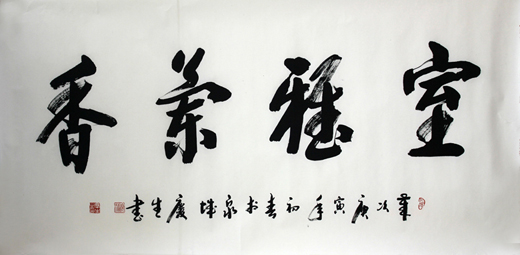 室雅蘭香
歲次庚寅年初春於泉城慶生書